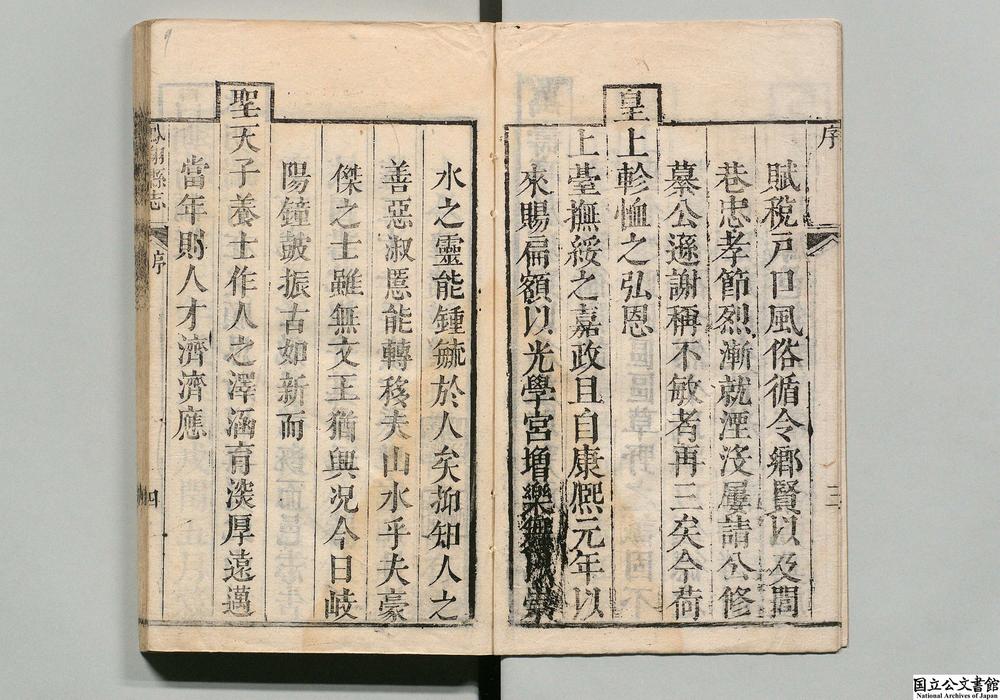 序
三
賦稅戸口風俗循令鄉賢以及閭
巷忠孝節烈漸就湮沒屢請公修
纂公遜謝稱不敏者再三矣今荷
皇上軫恤之弘恩
上臺撫綏之嘉政且自康熙元年以
來賜扁額以光學宮增樂以崇
水之靈能鍾毓於人矣抑知人之
善惡淑慝能轉移夫山水乎夫豪
傑之士雖無文王猶興况今日岐
陽鐘鼓振古如新而
聖天子養士作人之澤涵育深厚遠邁
當年則人才濟濟應
鳳翔縣志
序
四
国立公文書館
National Archives of Japan